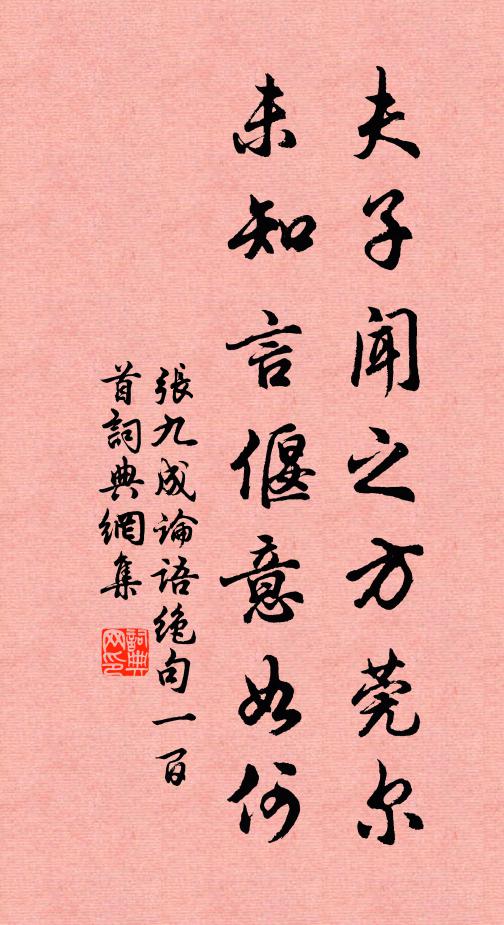 夫子闻之方莞尔
未知言偃意如何
張九成論语绝句一百
首詞典網集
詞典网印